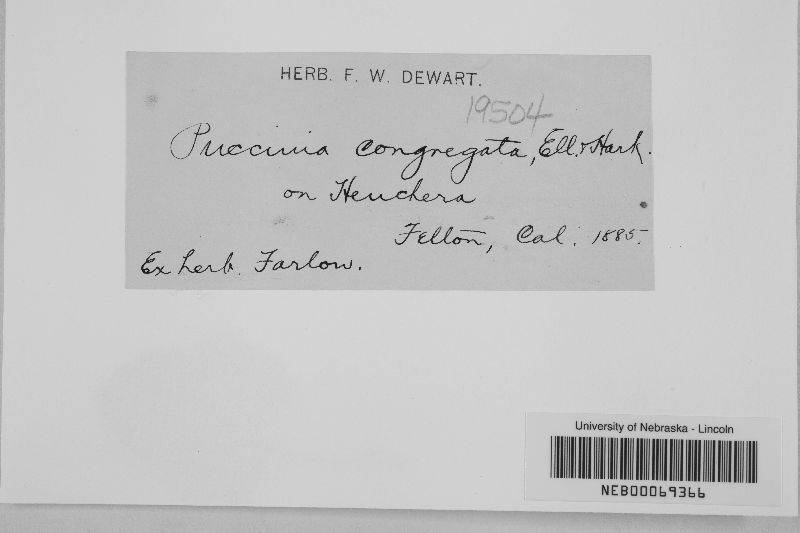 HERB. F. W. DEWART.
19504
Puccinia congregata, Ell. & Hark.
on Heuchera
Felton, Cal. 1885.
Ex herb. Farlow.
University of Nebraska - Lincoln
NEB00069366